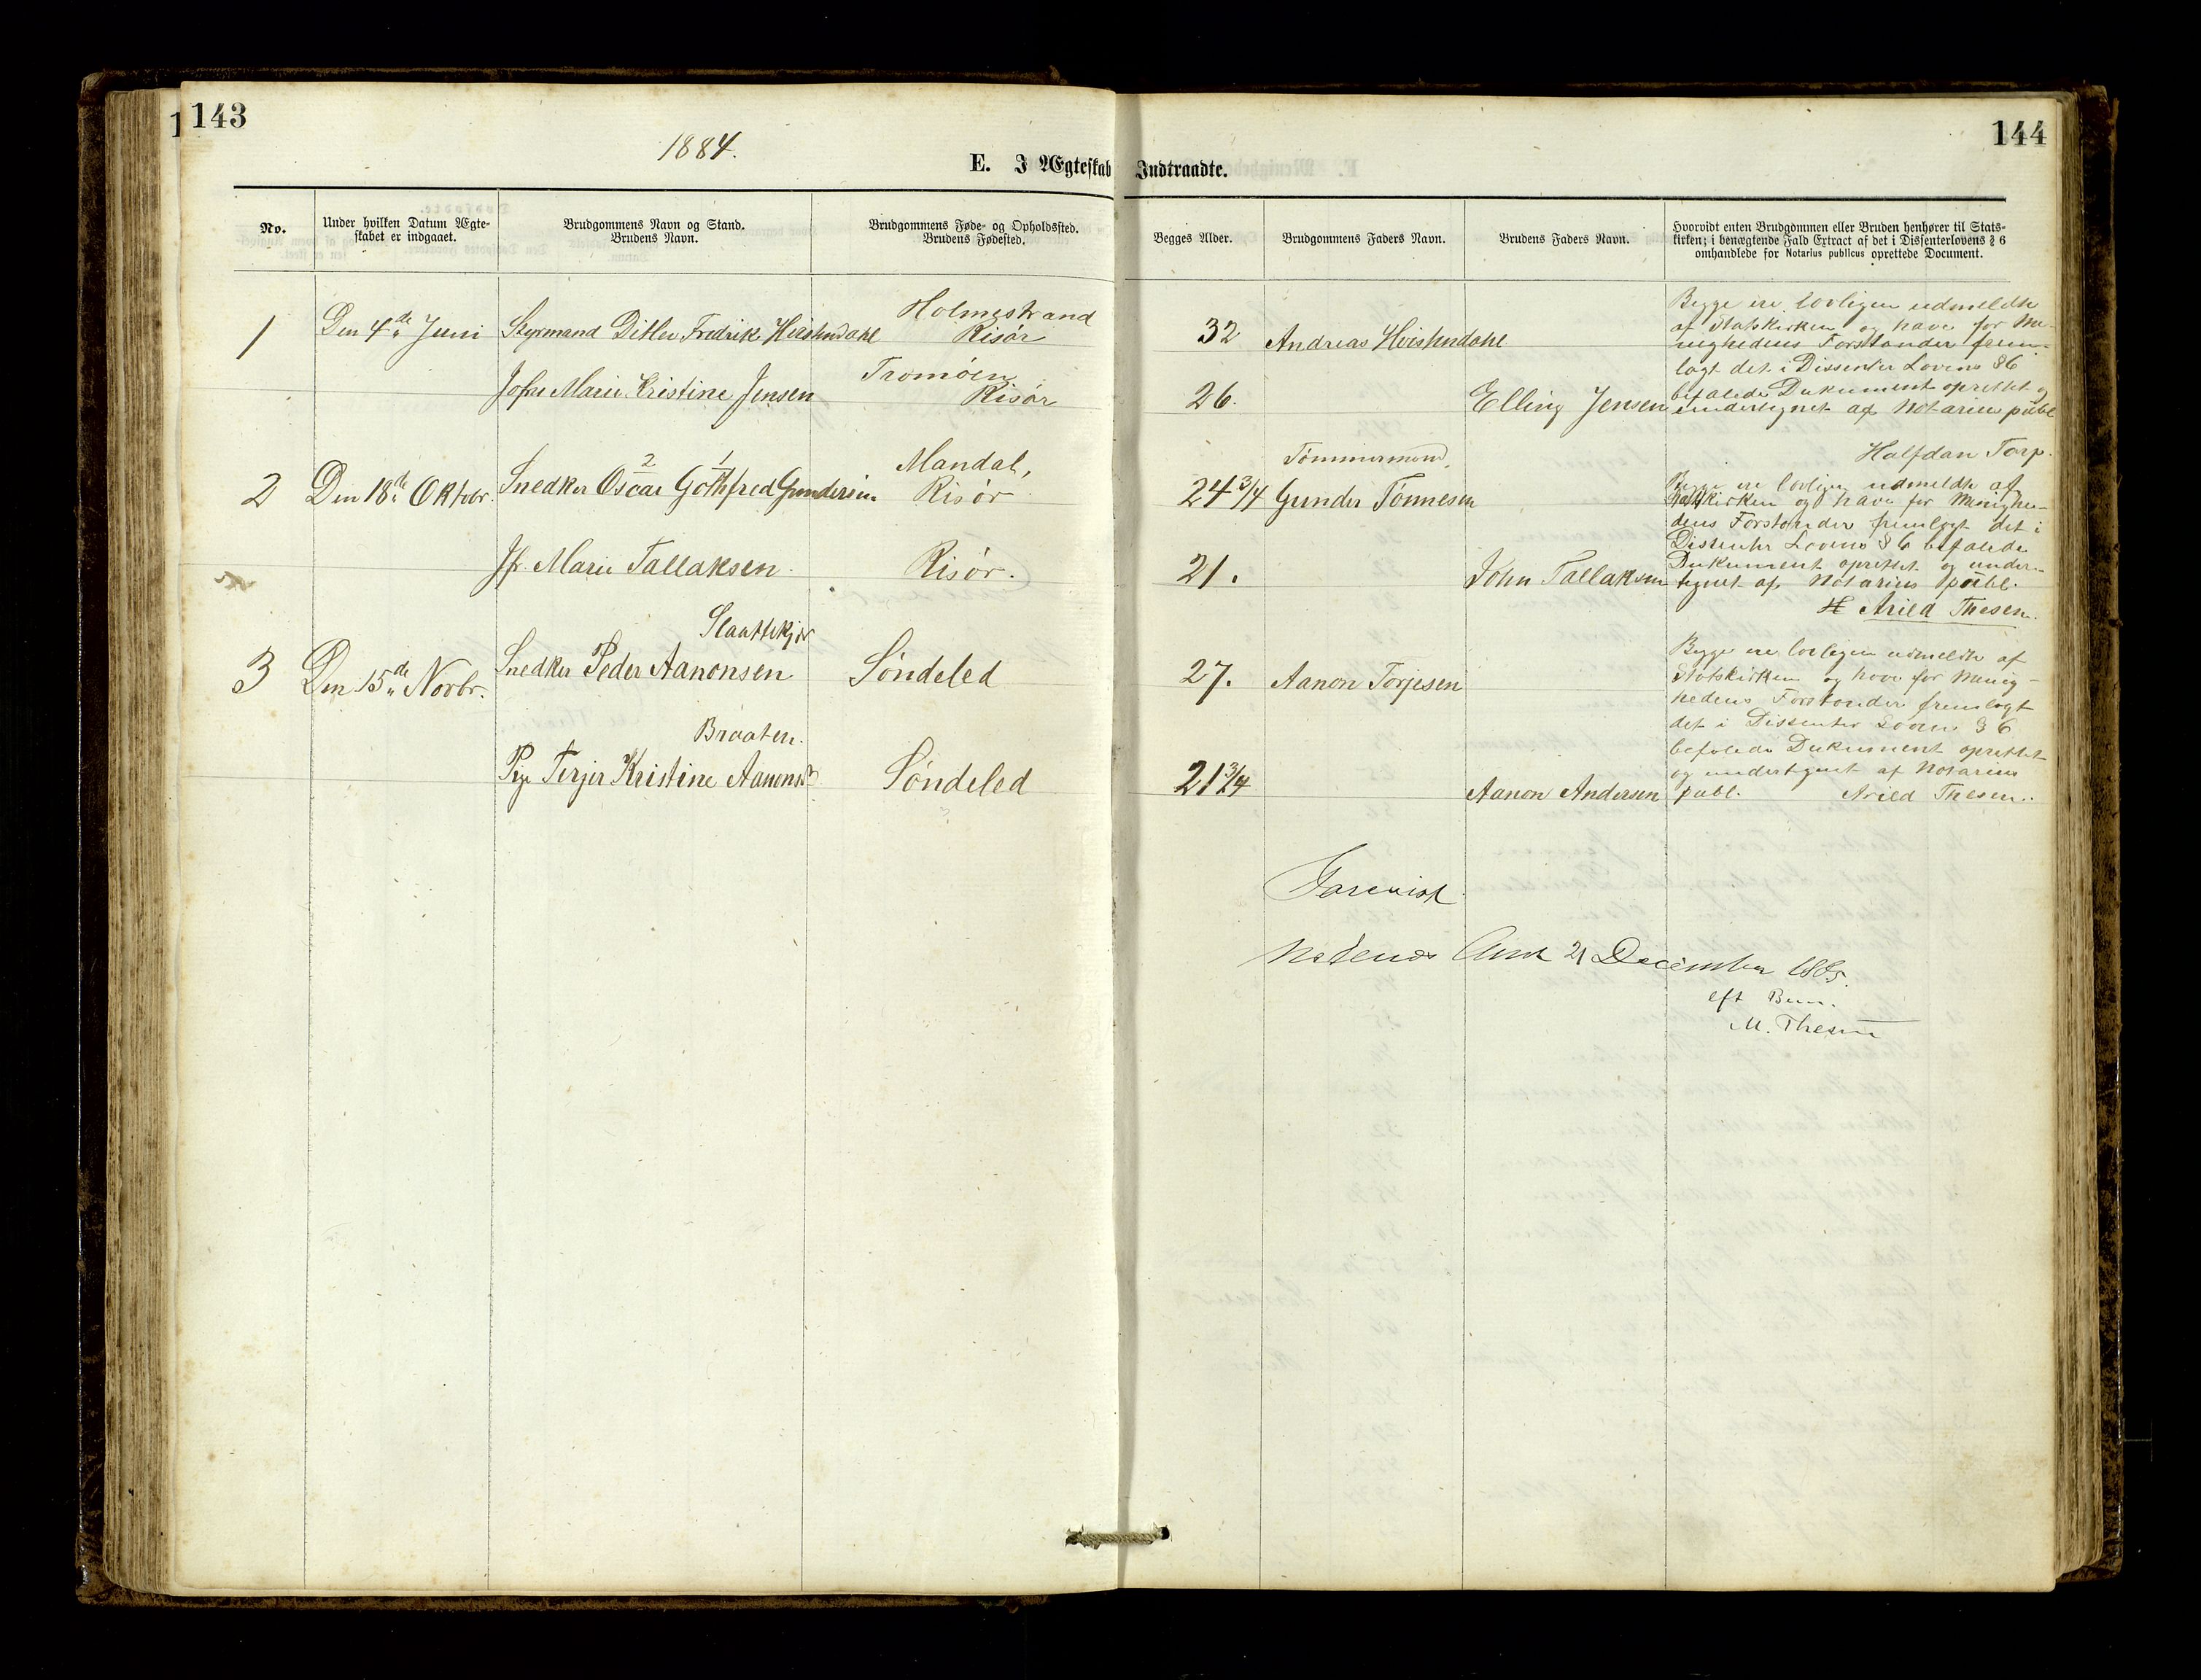 143
144
1884.
E. I Ægteskab Indtraadte.
No.
Under hvilken Datum Ægte-
skabet er indgaaet.
Brudgommens Navn og Stand.
Brudens Navn.
Brudgommens Føde- og Opholdssted.
Brudens Fødested.
Begges Alder.
Brudgommens Faders Navn.
Brudens Faders Navn.
Hvorvidt enten Brudgommen eller Bruden henhører til Stats-
kirken; i benægtende Fald Extract af det i Dissenterlovens § 6
omhandlede for Notarius publicus oprettede Document.
1
Den 4de Juni
Styrmand Ditlev Fredrik Hvistendahl
Holmestrand
Risör
32
Andreas Hvistendahl
Jofru Marie Kristine Jensen
Tromöen
Risör
26.
Elling Jensen
Begge ere lovligen udmeldte
af Statskirken og have for Me-
nighedens Forstander frem-
lagt det i Dissenter Lovens §6
befalede Dukument oprettet og
undertegnet af Notarius publ
Halfdan Torp.
2
Den 18de Oktobr.
2 1
Snedker Oscar Gothfred Gundersen
Mandal,
Risör
24 3/4
Tömmermand,
Gunder Tönnesen
Jfr. Marie Tallaksen.
Risör.
21.
John Tallaksen
Begge ere lovligen udmeldte af
Statskirken og have for Menighe-
dens Forstander fremlagt det i
Dissenter Lovens §6 befalede
Dukument oprettet og under-
tegnet af Notarius publ.
Arild Thesen.
3
Den 15de Novbr.
Slaattekjær
Snedker Peder Aanonsen
Söndeled
27.
Aanon Torjesen
Braaten.
Pige Terjer Kristine Aanonsd
Söndeled
21 3/4
Aanon Andersen
Begge ere lovligen udmeldte af
Statskirken og have for Menig-
hedens Forstander fremlagt
det i Dissenter Loven §6
befalede Dukument oprettet
og undertegnet af Notarius
publ. Arild Thesen.
Forevist
Nedenæs Amt 21 December 1885.
eft Bem.
M. Thesen